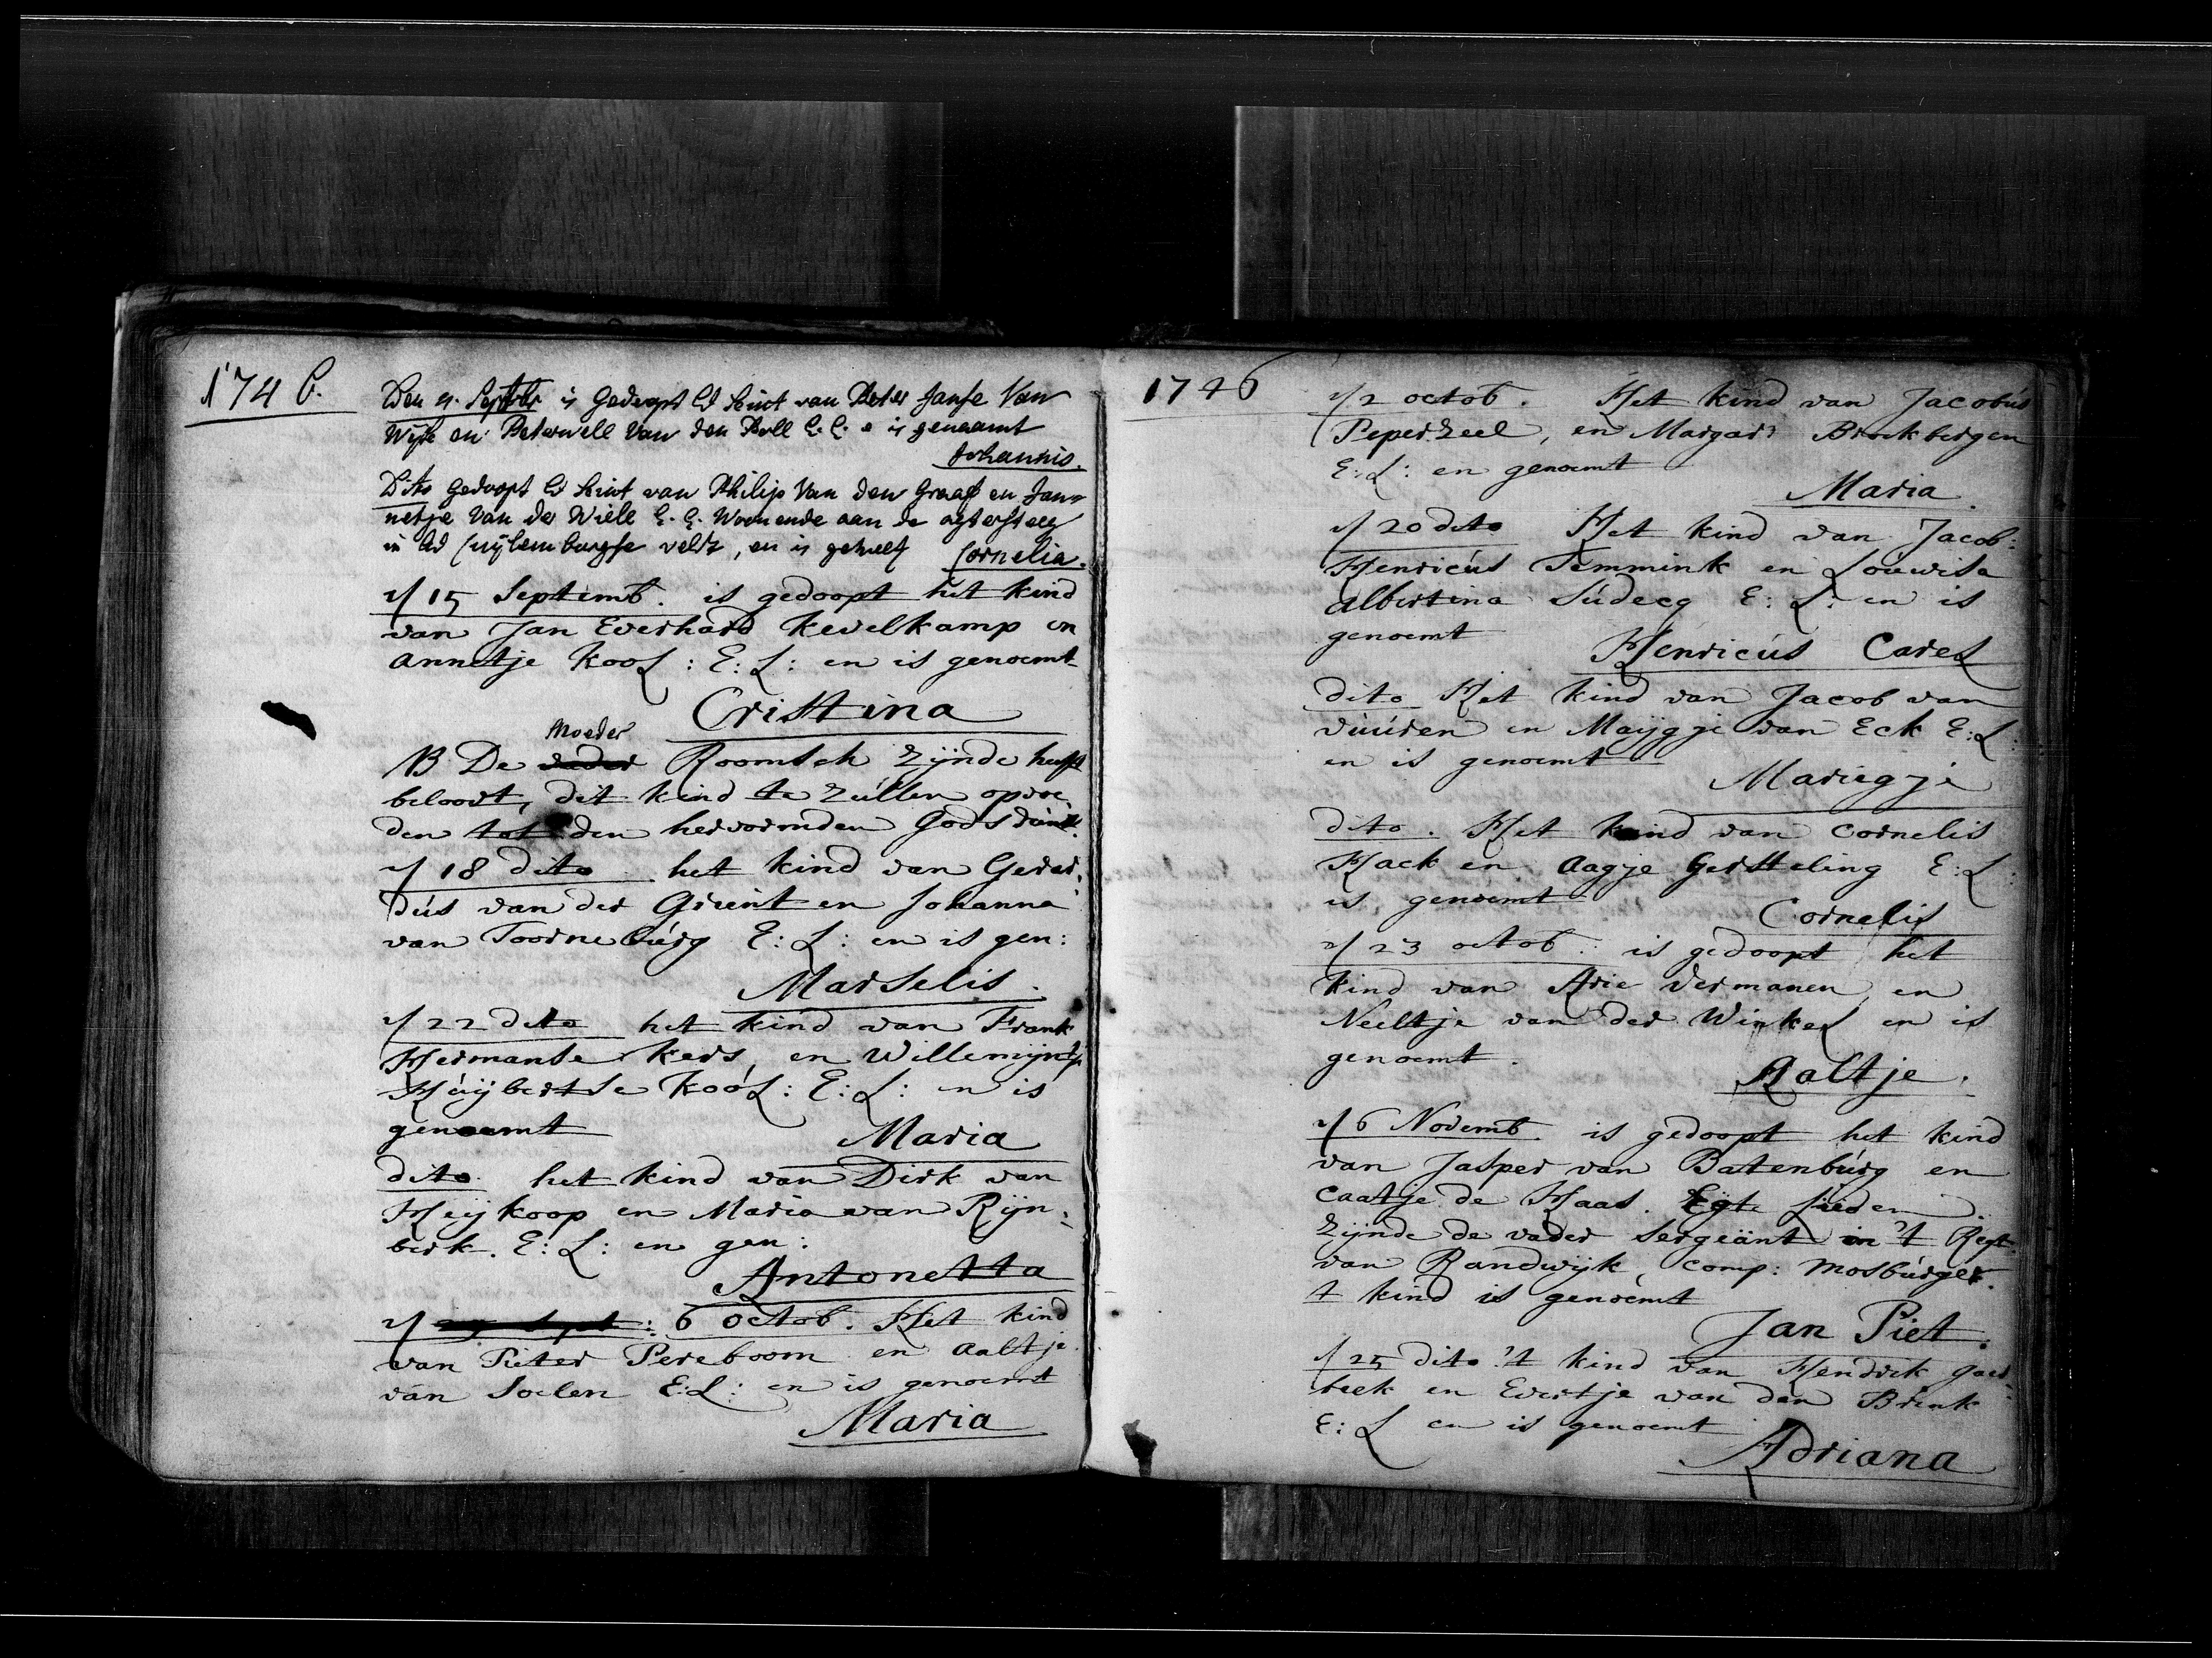 1746.
Den 4. Septbr is Gedoopt het kint van Peter Janse Van
Wijk en Peternell Van den Boll E. E. e is genaamt
Johannis.
Dito gedoopt het kint van Philip Van den Graaf en Jan-
netje Van der Wiele E. E. Woonende aan de agtersteeg
in het Cuijlemburgse veldt, en is geheett Cornelia.
1/15 Septemb. is gedoopt het kind
van Jan Everhard Kevelkamp en
annetje Kool : E: L: en is genoemt
Cristtina
Moeder
NB De vader Roomsch Zijnde heeft
belooft, dit kind te Zullen opvoe
den tot den hervormden Godsdinst.
1/18 dito het kind van Gerar,
dus van der Grient en Johanna
van Toorneburg E: L: en is gen:
Marselis.
1/22 dito het kind van Frank
Hermanse kers, en Willemijntje
Huijbertse Kool: E: L: en is
genoemt Maria
dito het kind van Dirk van
Heijkoop en Maria van Rijn:
berk. E: L: en gen:
Antonetta
1/ sept: 6 octob. Het kind
van Pieter Pereboom en Aaltje
van Soelen E:L: en is genoemt
Maria
1746
1/2 octob. Het kind van Jacobus
Peperzeel, en Margar: Brockbergen
E: L: en genoemt
Maria
1/20 dito Het kind van Jacob:
Henricus Temmink en Louwisa
albertina Sudecg E: L: en is
genoemt
Henricus Carel
dito Het kind van Jacob van
vuuren en Maijgje van Eck E:L:
en is genoemt
Mariegje
dito. Het kind van Cornelis
Hack en Aagje Gerstteling E: L:
is genoemt
Cornelis
1/23 octob: is gedoopt het
kind van Arie Vermanen en
Neeltje van der Winkel en is
genoemt.
Aaltje.
1/6 Novemb. is gedoopt het kind
van Jasper van Batenburg en
Caatje de Haas. Egte lieden
Zijnde de vader Sergeant in 't Regt.
van Randwijk, comp: Mosburger.
t kind is genoemt
Jan Piet.
1/25 dito 't kind van Hendrik Goed:
beek en Evertje van den Brink
E: L en is genoemt
Adriana